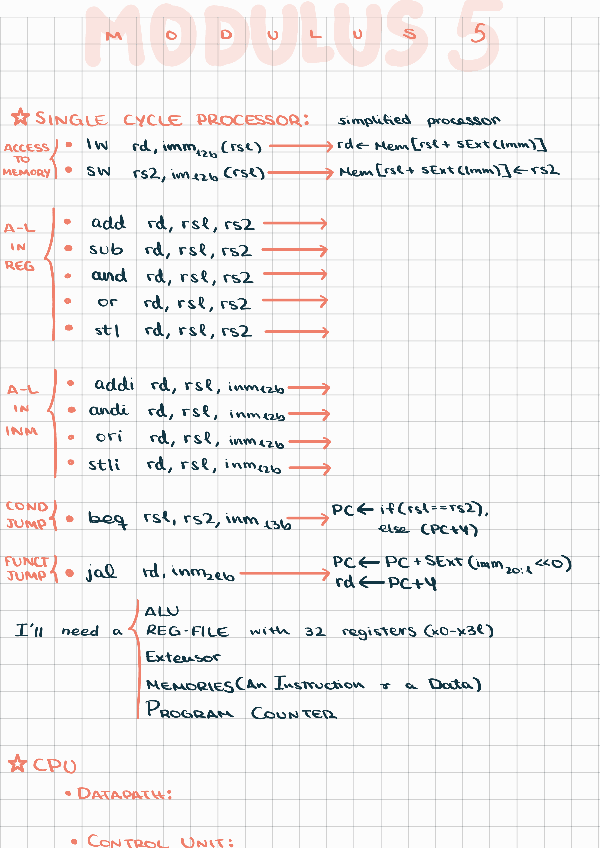 MODULUS 5
M O D U L U S 5
☆ SINGLE CYCLE PROCESSOR: simplified processor
ACCESS TO MEMORY
• lw rd, imm12b (rs1) → rd ← Mem[rs1 + SExt(Imm)]
• sw rs2, im12b (rs1) → Mem[rs1 + SExt(Imm)] ← rs2
A-L IN REG
• add rd, rs1, rs2 →
• sub rd, rs1, rs2 →
• and rd, rs1, rs2 →
• or rd, rs1, rs2 →
• stl rd, rs1, rs2 →
A-L IN INM
• addi rd, rs1, inm12b →
• andi rd, rs1, inm12b →
• ori rd, rs1, inm12b →
• stli rd, rs1, inm12b →
COND JUMP
• beq rs1, rs2, inm13b → PC ← if(rs1==rs2),
else (PC+4)
FUNCT JUMP
• jal rd, inm21b → PC ← PC + SExt(imm20:1 <<0)
rd ← PC+4
I'll need a
ALU
REG-FILE with 32 registers (x0-x31)
Extensor
MEMORIES (An Instruction & a Data)
PROGRAM COUNTER
☆ CPU
• DATAPATH:
• CONTROL UNIT: